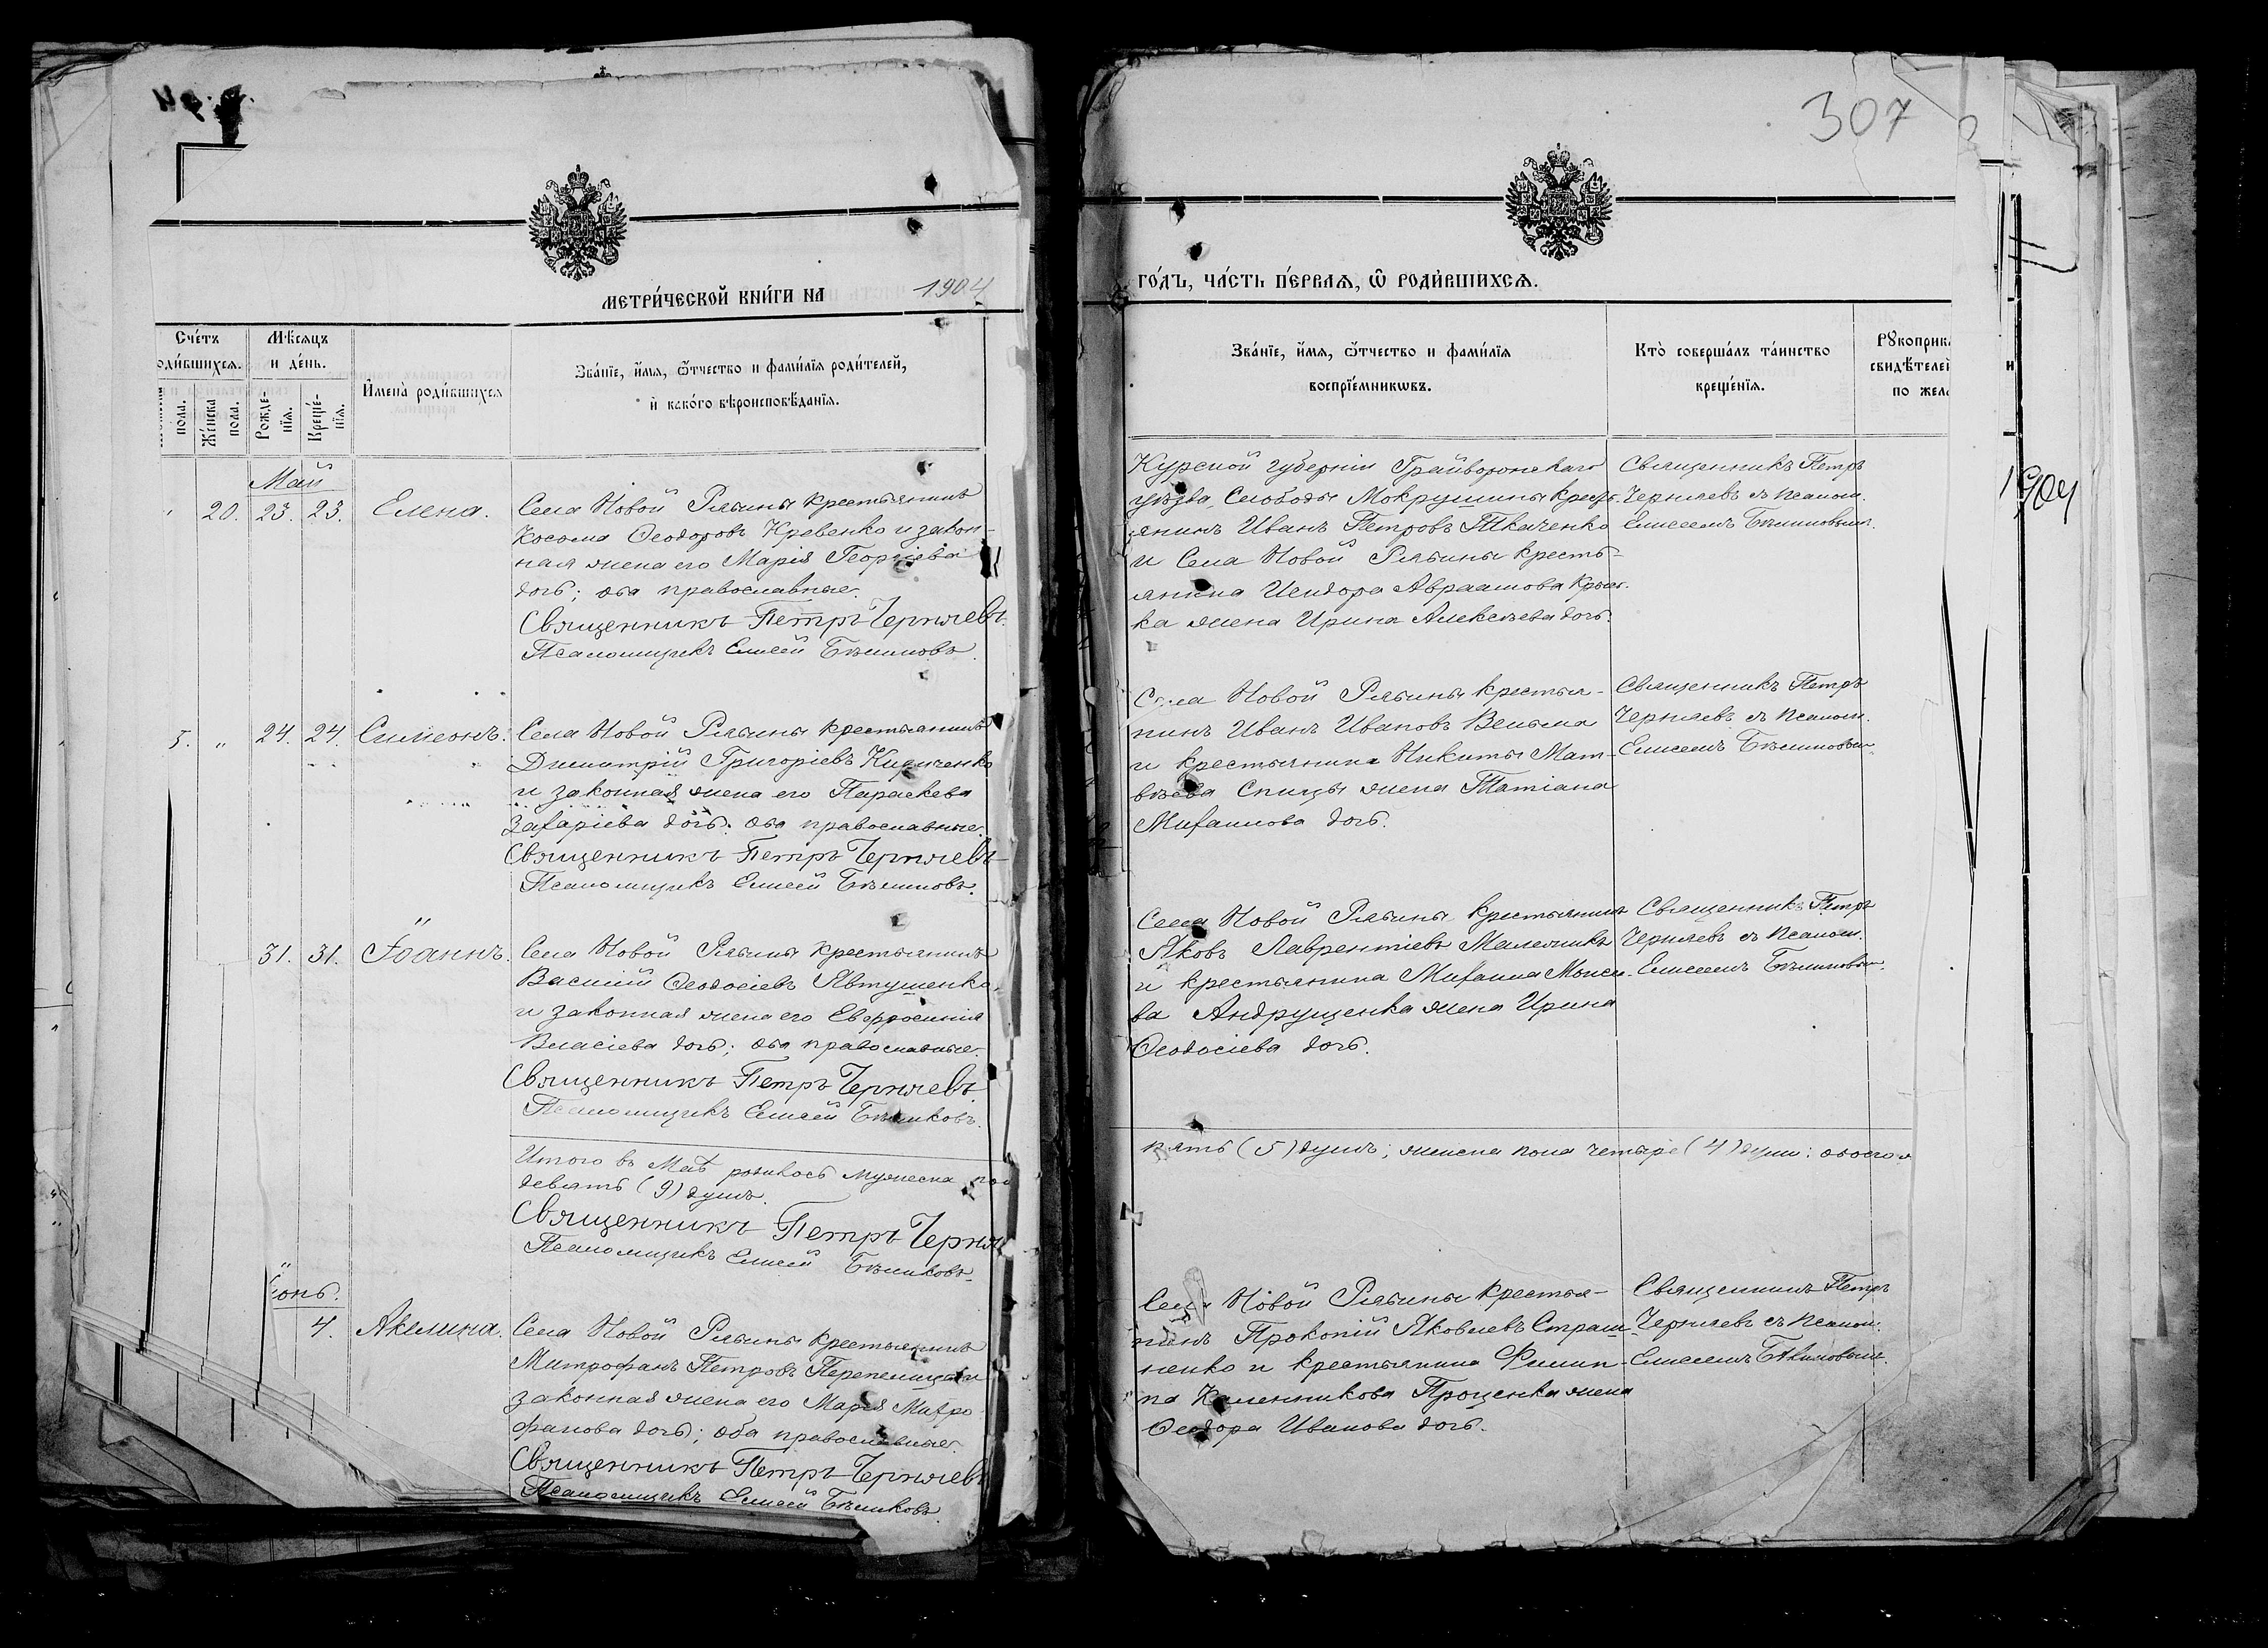 307
МЕТРИЧЕСКОЙ КНИГИ НА 1904
ГОДЪ, ЧАСТЬ ПЕРВАЯ, Ѡ РОДИВШИХСЯ.
Счетъ
одившихся.
Мѣсяцъ
и день.
Имена родившихся
Званіе, имя, отчество и фамилія родителей,
и какого вѣроисповѣданія.
пола.
Женска
пола.
Рожде-
нія.
Креще-
нія.
Званіе, имя, отчество и фамилія
воспріемниковъ.
Кто совершалъ таинство
крещенія.
Рукоприк
свидѣтелей
по жела
Май
20. 23. 23. Елена.
Села Новой Рябины крестьянинъ
Косьма Ѳеодоровъ Кревенко и закон-
ная жена его Марія Георгіева
дочь; оба православные.
Священникъ Петръ Черняевъ
Псаломщикъ Елисей
Курской губерніи Грайворонскаго
уѣзда, Слободы Мокрушины крест-
янинъ Иванъ Петровъ Ткаченко
и Села Новой Рябины кресть-
янина Исидора Авраамова
ка жена Ирина Алексѣева дочь.
Священникъ Петръ
Черняевъ съ псалом.
Елисеемъ
" 24. 24. Симеонъ.
Села Новой Рябины крестьянинъ
Димитрій Григоріевъ Кириченко
и законная жена его Параскева
Захаріева дочь; оба православные.
Священникъ Петръ Черняевъ
Псаломщикъ Елисей
Села Новой Рябины крестья-
нинъ Иванъ Ивановъ Вельма
и крестьянина Никиты Мат-
вѣева Спицы жена Татіана
Михаилова дочь.
Священникъ Петръ
Черняевъ съ псалом.
Елисеемъ
"
31. 31. Іоаннъ.
Села Новой Рябины крестьянинъ
Василій Ѳеодосіевъ Явтушенко,
и законная жена его Евфросинія
Власіева дочь; оба православные.
Священникъ Петръ Черняевъ
Псаломщикъ Елисей
Села Новой Рябины крестьянинъ
Яковъ Лаврентіевъ
и крестьянина Михаила Моисе-
ва Андрущенка жена Ирина
Ѳеодосіева дочь.
Священникъ Петръ
Черняевъ съ псалом.
Елисеемъ
Итого въ Маѣ родилось мужеска пол
пять (5) душъ; женска пола четыре (4) души: обоего
девять (9) душъ.
Священникъ Петръ Черня
Псаломщикъ Елисей
юнь.
4. Акилина.
Села Новой Рябины крестьянинъ
Митрофанъ Петровъ Перепелица и
законная жена его Марія Митро
фанова дочь; оба православные.
Священникъ Петръ Черняевъ
Псаломщикъ Елисей
Села Новой Рябины крестья-
нинъ Прокопій Яковлевъ Страш-
ненко и крестьянина Филип-
па Каленникова Проценка жена
Ѳеодора Иванова дочь.
Священникъ Петръ
Черняевъ съ псалом.
Елисеемъ
1904